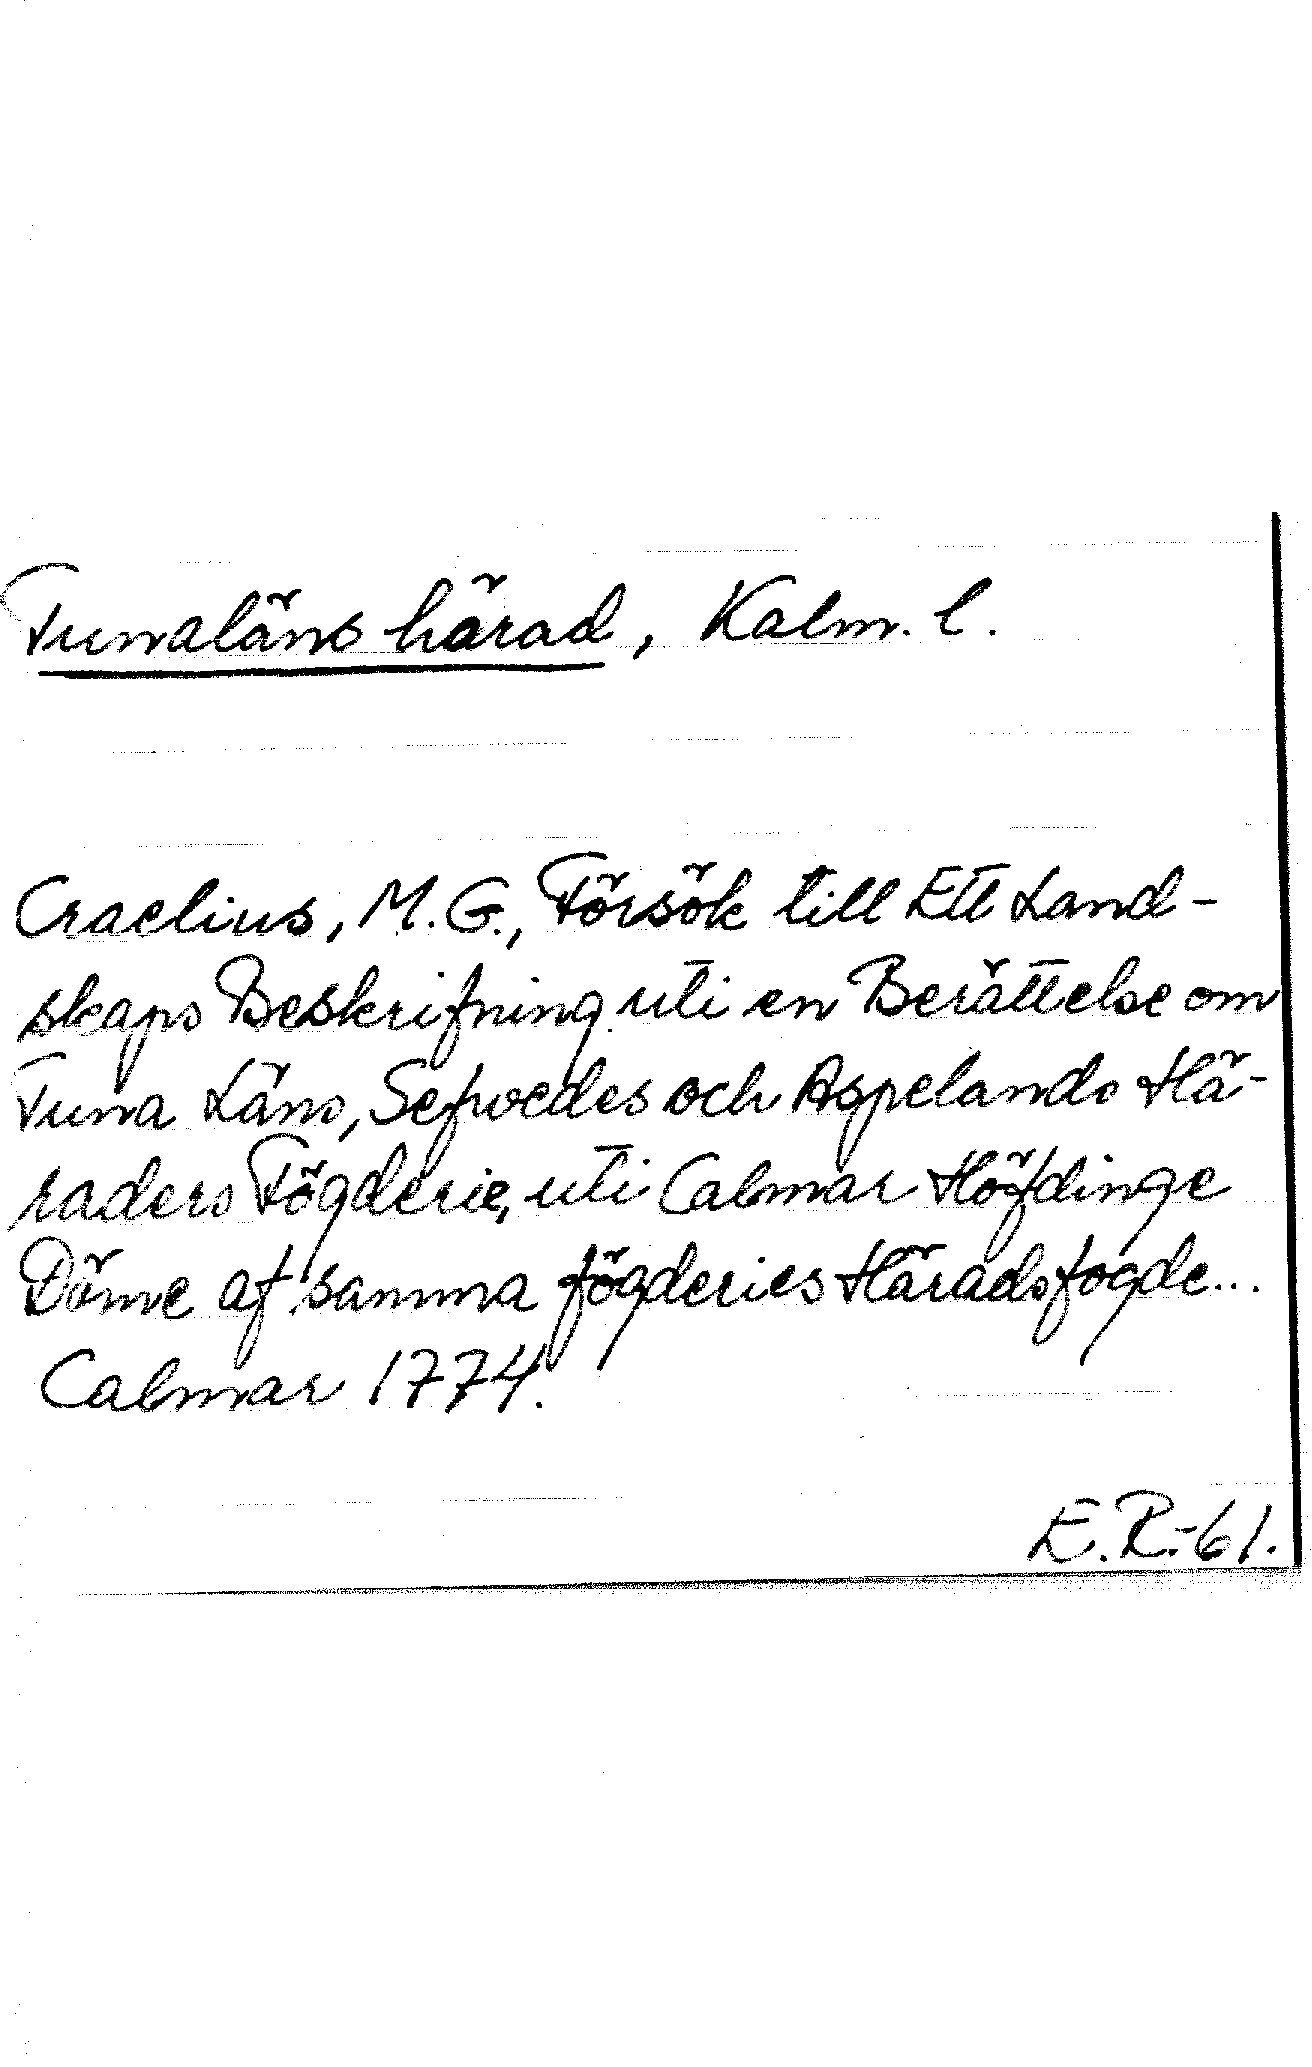 Tunaläns härad, Kalm. l.
Craelius, M.G., Försök till Ett Land-
skaps Beskrifning uti en Berättelse om
Tuna Läns, Sefwedes och Aspelands Hä-
raders Fögderie, uti Calmar Höfdinge
Döme af samma fögderies Häradsfogde...
Calmar 1774.
E.R.-61.